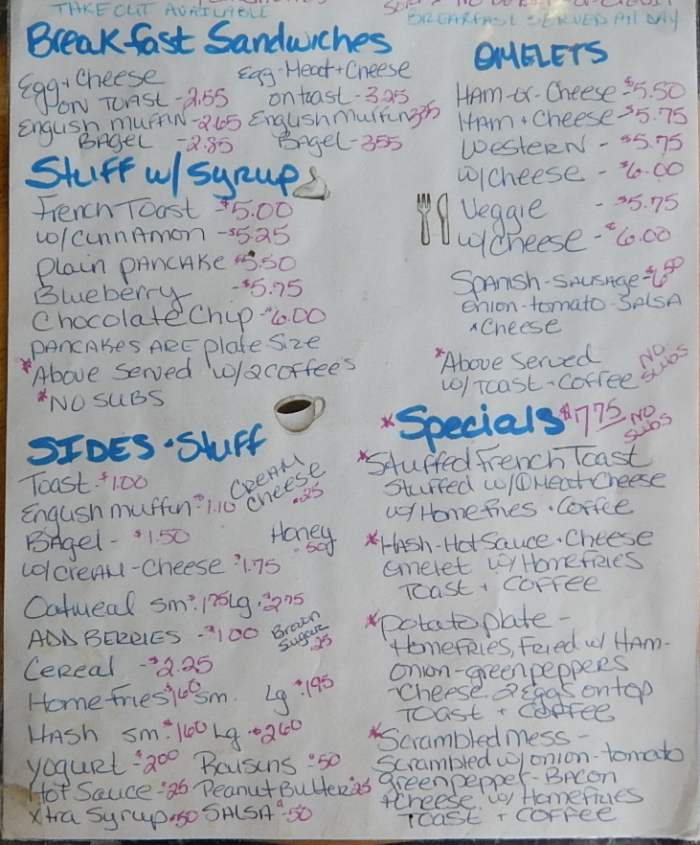 TAKE OUT AVAILABLE
BREAKFAST SERVED All DAY
Breakfast Sandwiches
Egg + Cheese
ON TOAST - 2.55
English muffin - 2.65
BAGEL - 2.85
Egg-Meat + Cheese
on toast - 3.25
English muffin 3.35
BAgel - 355
Stuff w/ Syrup
French Toast - $5.00
w/ cinnAmon - $5.25
plain pancake $5.50
Blueberry - $5.75
Chocolate Chip - $6.00
pancakes are plate size
*Above served w/ 2 coffee's
*NO SUBS
SIDES + Stuff
Toast - $1.00
English muffin - $1.10
CREAM cheese .25
BAgel - $1.50
Honey .50
w/ creAM - cheese $1.75
Oatmeal sm $1.75 Lg. $2.75
ADD BERRIES - $1.00
Brown Sugar .25
Cereal - $2.25
Home fries $1.60 sm. Lg $.195
HASH sm. $160 Lg - $260
yogurt - $200 Raisins .50
Hot Sauce - .25 Peanut Butter .25
Xtra Syrup .50 SALSA .50
OMELETS
HAM-or-Cheese - $5.50
HAM + Cheese - $5.75
Western - $5.75
w/cheese - $6.00
Veggie - $5.75
w/cheese - $6.00
SPANISH - SAUSAGE - $6.50
onion - tomato - SALSA
+ Cheese
*Above Served
w/ TOAST + Coffee
NO SUBS
*Specials $7.75 NO SUBS
*Stuffed French Toast
Stuffed w/ 1 Meat + Cheese
w/ Home Fries + Coffee
*HASH - Hot Sauce + Cheese
omelet w/ Home fries
Toast + Coffee
*potato plate -
Home fries, Fried w/ HAM -
Onion - green peppers
- cheese. 2 Eggs on top
TOAST + Coffee
*Scrambled Mess -
Scrambled w/ onion - tomato
green pepper - BACON
+ cheese w/ Home fries
TOAST + COFFEE